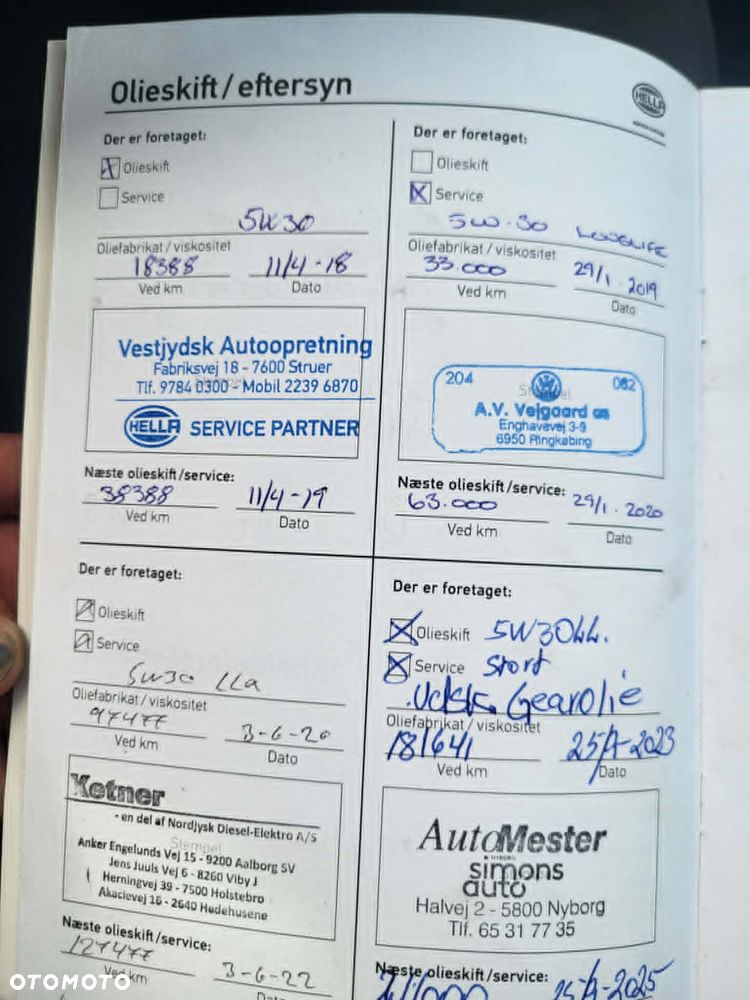 Olieskift / eftersyn
HELLA
Der er foretaget:
X Olieskift
Service
5W30
Oliefabrikat / viskositet
18388 11/4-18
Ved km Dato
Vestjydsk Autoopretning
Fabriksvej 18 - 7600 Struer
Tlf. 9784 0300 - Mobil 2239 6870
HELLA SERVICE PARTNER
Næste olieskift/service:
38388 11/4-19
Ved km Dato
Der er foretaget:
Olieskift
X Service
5W-30 LONGLIFE
Oliefabrikat / viskositet
33.000 29/1.2019
Ved km Dato
204 082
Stempel
A.V. Vejgaard as
Enghavevej 3-9
6950 Ringkøbing
Næste olieskift/service:
63.000 29/1.2020
Ved km Dato
Der er foretaget:
Olieskift
Service
5W30 LLa
Oliefabrikat / viskositet
97477 3-6-20
Ved km Dato
Ketner
- en del af Nordjysk Diesel-Elektro A/S
Stempel
Anker Engelunds Vej 15 - 9200 Aalborg SV
Jens Juuls Vej 6 - 8260 Viby J
Herningvej 39 - 7500 Holstebro
Akacievej 16 - 2640 Hedehusene
Næste olieskift/service:
127477 3-6-22
Ved km Dato
Der er foretaget:
X Olieskift 5W30LL.
X Service Stort
.Udsk. Gearolie
Oliefabrikat / viskositet
181641 25/1-2023
Ved km Dato
AutoMester
simons
auto
Halvej 2 - 5800 Nyborg
Tlf. 65 31 77 35
Næste olieskift/service:
25/1-2025
OTOMOTO